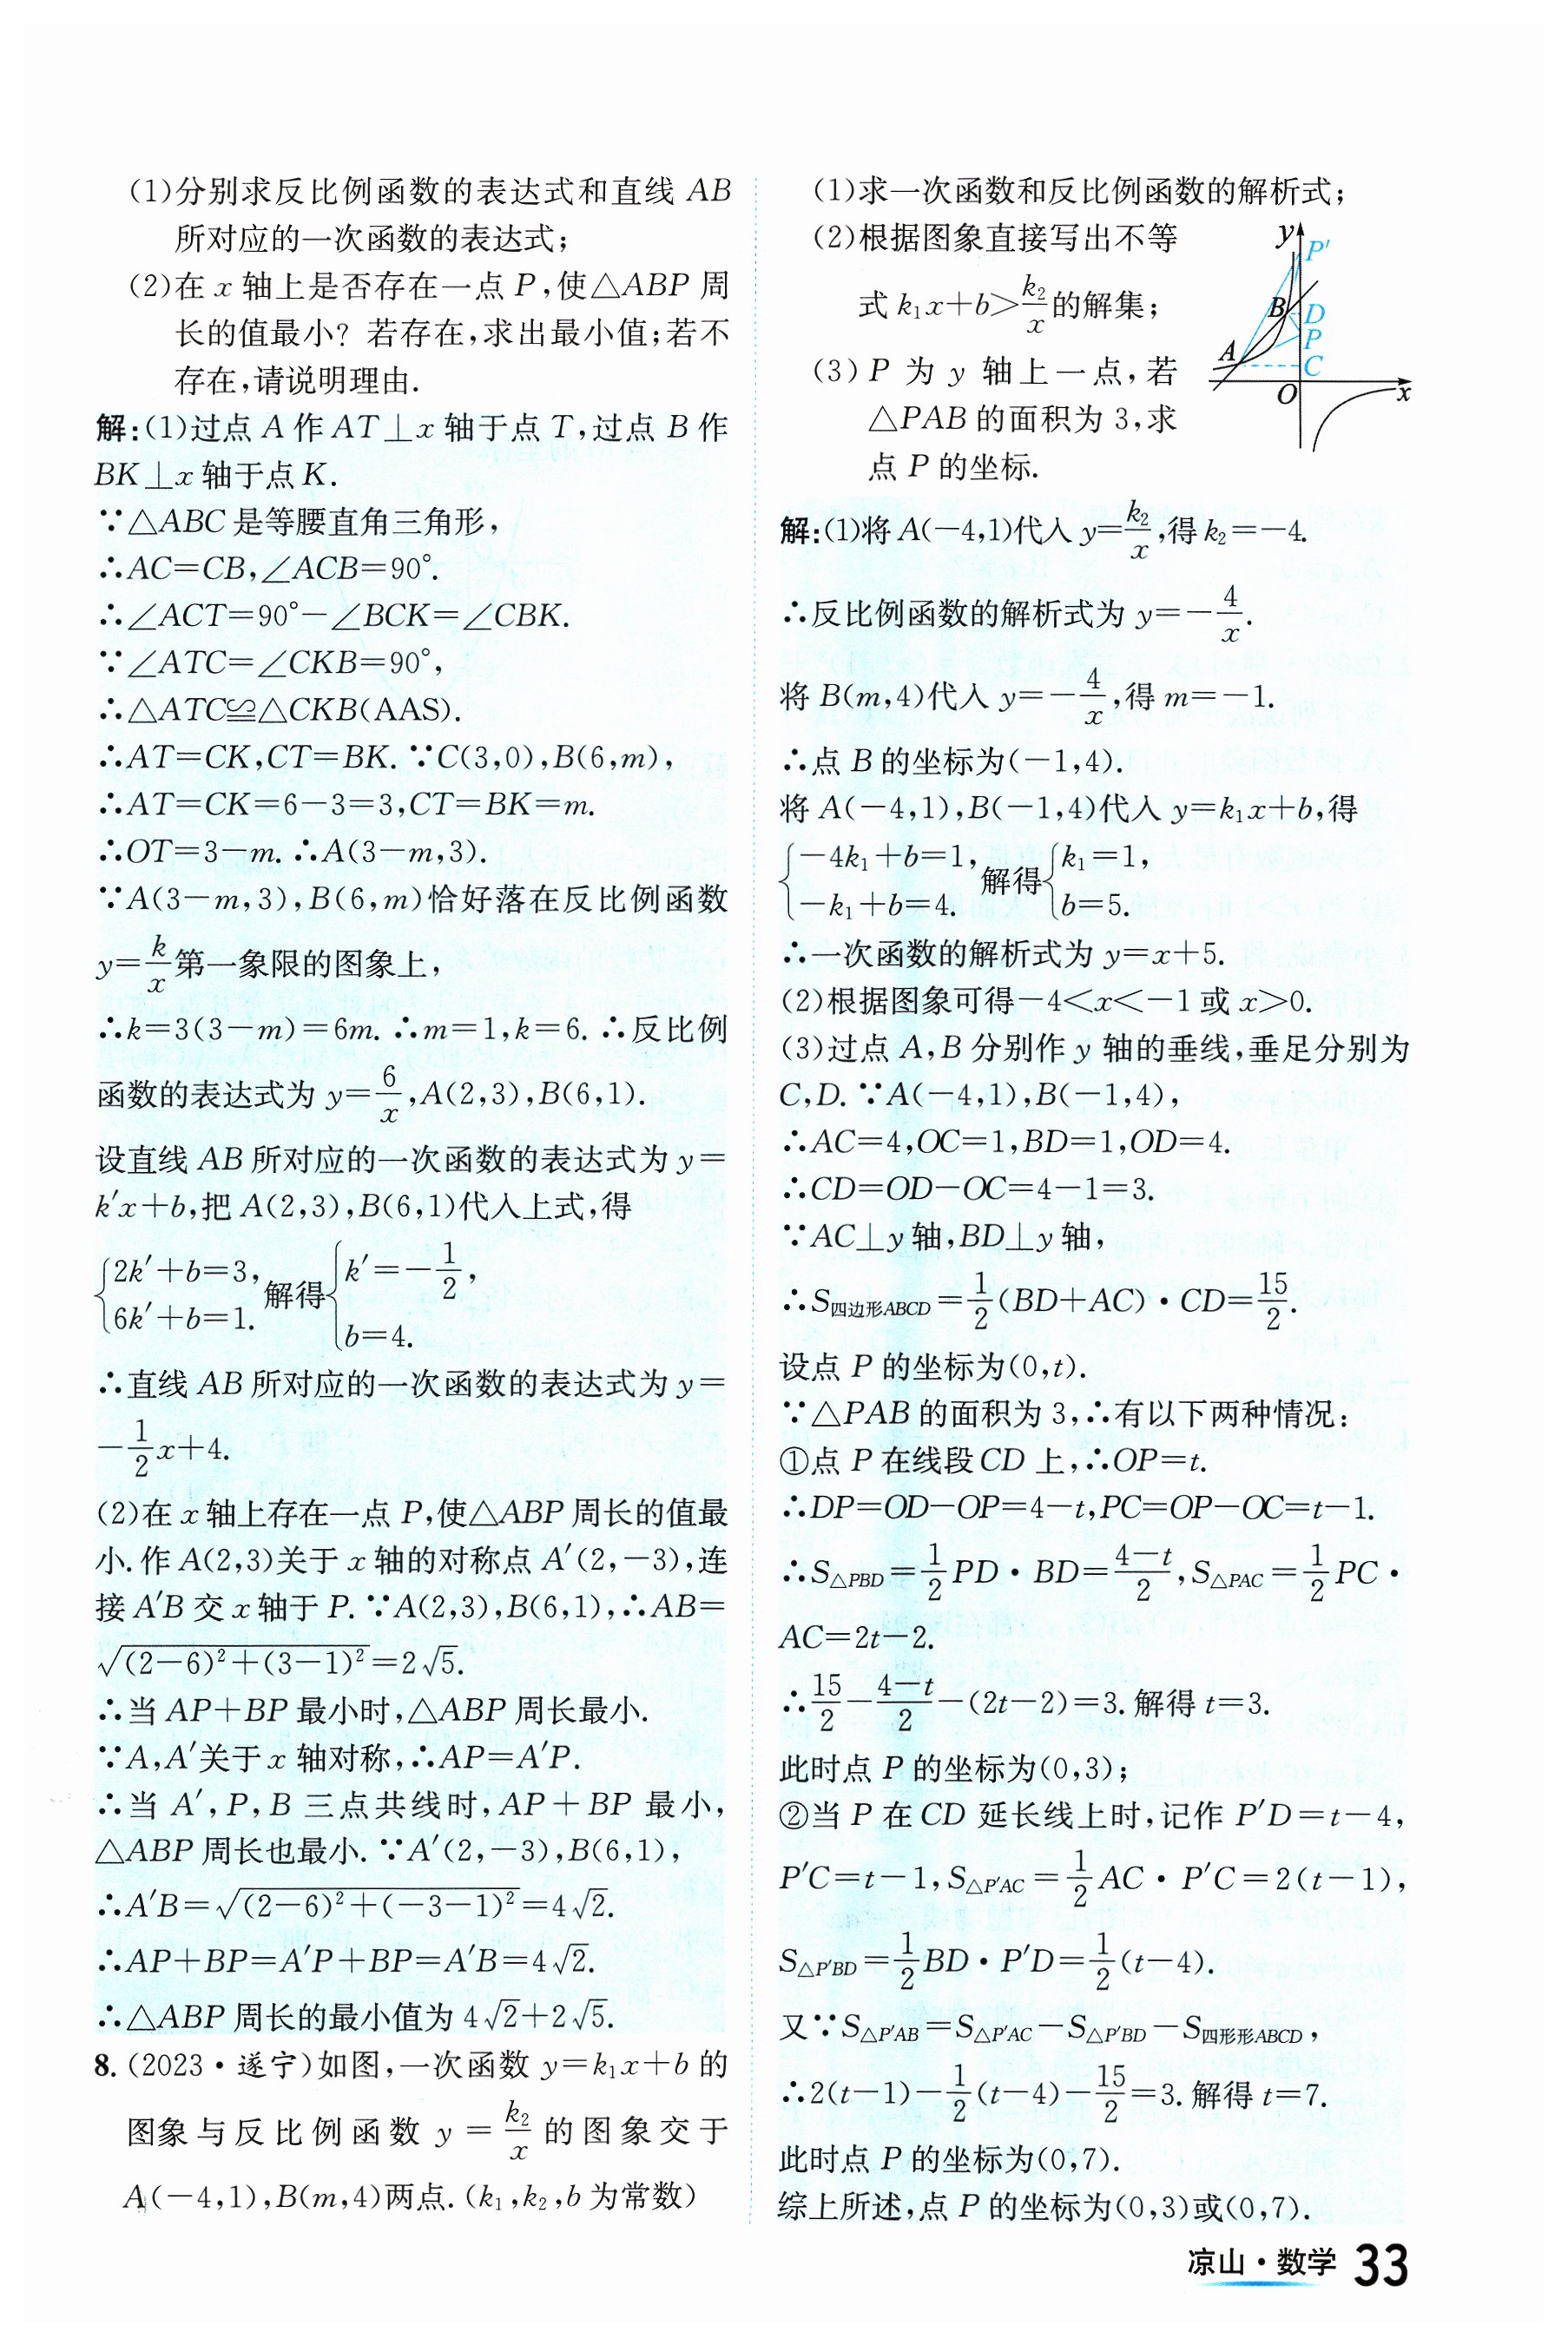 (1)分别求反比例函数的表达式和直线 AB
所对应的一次函数的表达式;
(2)在 x 轴上是否存在一点 P,使△ABP 周
长的值最小? 若存在,求出最小值;若不
存在,请说明理由.
解:(1)过点 A 作 AT⊥x 轴于点 T,过点 B 作
BK⊥x 轴于点 K.
∵△ABC 是等腰直角三角形,
∴AC=CB,∠ACB=90°.
∴∠ACT=90°-∠BCK=∠CBK.
∵∠ATC=∠CKB=90°,
∴△ATC≌△CKB(AAS).
∴AT=CK,CT=BK. ∵C(3,0),B(6,m),
∴AT=CK=6-3=3,CT=BK=m.
∴OT=3-m. ∴A(3-m,3).
∵A(3-m,3),B(6,m)恰好落在反比例函数
y=k/x 第一象限的图象上,
∴k=3(3-m)=6m. ∴m=1,k=6. ∴反比例
函数的表达式为 y=6/x,A(2,3),B(6,1).
设直线 AB 所对应的一次函数的表达式为 y=
k′x+b,把 A(2,3),B(6,1)代入上式,得
{2k′+b=3, 6k′+b=1. 解得 {k′=-1/2, b=4.
∴直线 AB 所对应的一次函数的表达式为 y=
-1/2 x+4.
(2)在 x 轴上存在一点 P,使△ABP 周长的值最
小. 作 A(2,3)关于 x 轴的对称点 A′(2,-3),连
接 A′B 交 x 轴于 P. ∵A(2,3),B(6,1),∴AB=
√((2-6)²+(3-1)²)=2√5.
∴当 AP+BP 最小时,△ABP 周长最小.
∵A,A′关于 x 轴对称,∴AP=A′P.
∴当 A′,P,B 三点共线时,AP+BP 最小,
△ABP 周长也最小. ∵A′(2,-3),B(6,1),
∴A′B=√((2-6)²+(-3-1)²)=4√2.
∴AP+BP=A′P+BP=A′B=4√2.
∴△ABP 周长的最小值为 4√2+2√5.
8. (2023·遂宁)如图,一次函数 y=k₁x+b 的
图象与反比例函数 y=k₂/x 的图象交于
A(-4,1),B(m,4)两点. (k₁,k₂,b 为常数)
(1)求一次函数和反比例函数的解析式;
(2)根据图象直接写出不等
式 k₁x+b>k₂/x 的解集;
(3)P 为 y 轴上一点,若
△PAB 的面积为 3,求
点 P 的坐标.
y
P′
B
D
P
A
C
O
x
解:(1)将 A(-4,1)代入 y=k₂/x,得 k₂=-4.
∴反比例函数的解析式为 y=-4/x.
将 B(m,4)代入 y=-4/x,得 m=-1.
∴点 B 的坐标为(-1,4).
将 A(-4,1),B(-1,4)代入 y=k₁x+b,得
{-4k₁+b=1, -k₁+b=4. 解得 {k₁=1, b=5.
∴一次函数的解析式为 y=x+5.
(2)根据图象可得-4<x<-1 或 x>0.
(3)过点 A,B 分别作 y 轴的垂线,垂足分别为
C,D. ∵A(-4,1),B(-1,4),
∴AC=4,OC=1,BD=1,OD=4.
∴CD=OD-OC=4-1=3.
∵AC⊥y 轴,BD⊥y 轴,
∴S四边形ABCD=1/2(BD+AC)·CD=15/2.
设点 P 的坐标为(0,t).
∵△PAB 的面积为 3,∴有以下两种情况:
①点 P 在线段 CD 上,∴OP=t.
∴DP=OD-OP=4-t,PC=OP-OC=t-1.
∴S△PBD=1/2 PD·BD=(4-t)/2,S△PAC=1/2 PC·
AC=2t-2.
∴15/2-(4-t)/2-(2t-2)=3. 解得 t=3.
此时点 P 的坐标为(0,3);
②当 P 在 CD 延长线上时,记作 P′D=t-4,
P′C=t-1,S△P′AC=1/2 AC·P′C=2(t-1),
S△P′BD=1/2 BD·P′D=1/2(t-4).
又∵S△P′AB=S△P′AC-S△P′BD-S四形形ABCD,
∴2(t-1)-1/2(t-4)-15/2=3. 解得 t=7.
此时点 P 的坐标为(0,7).
综上所述,点 P 的坐标为(0,3)或(0,7).
凉山·数学 33